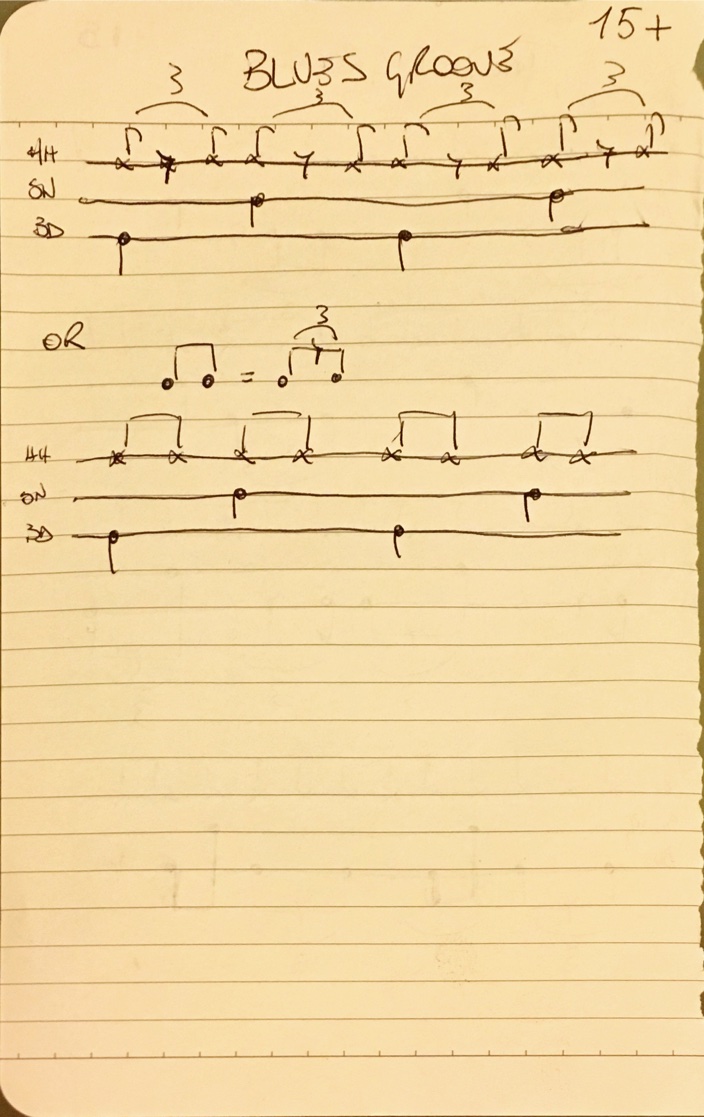 15+
BLUES GROOVE
3 3 3 3
HH
SN
BD
OR
3
=
HH
SN
BD